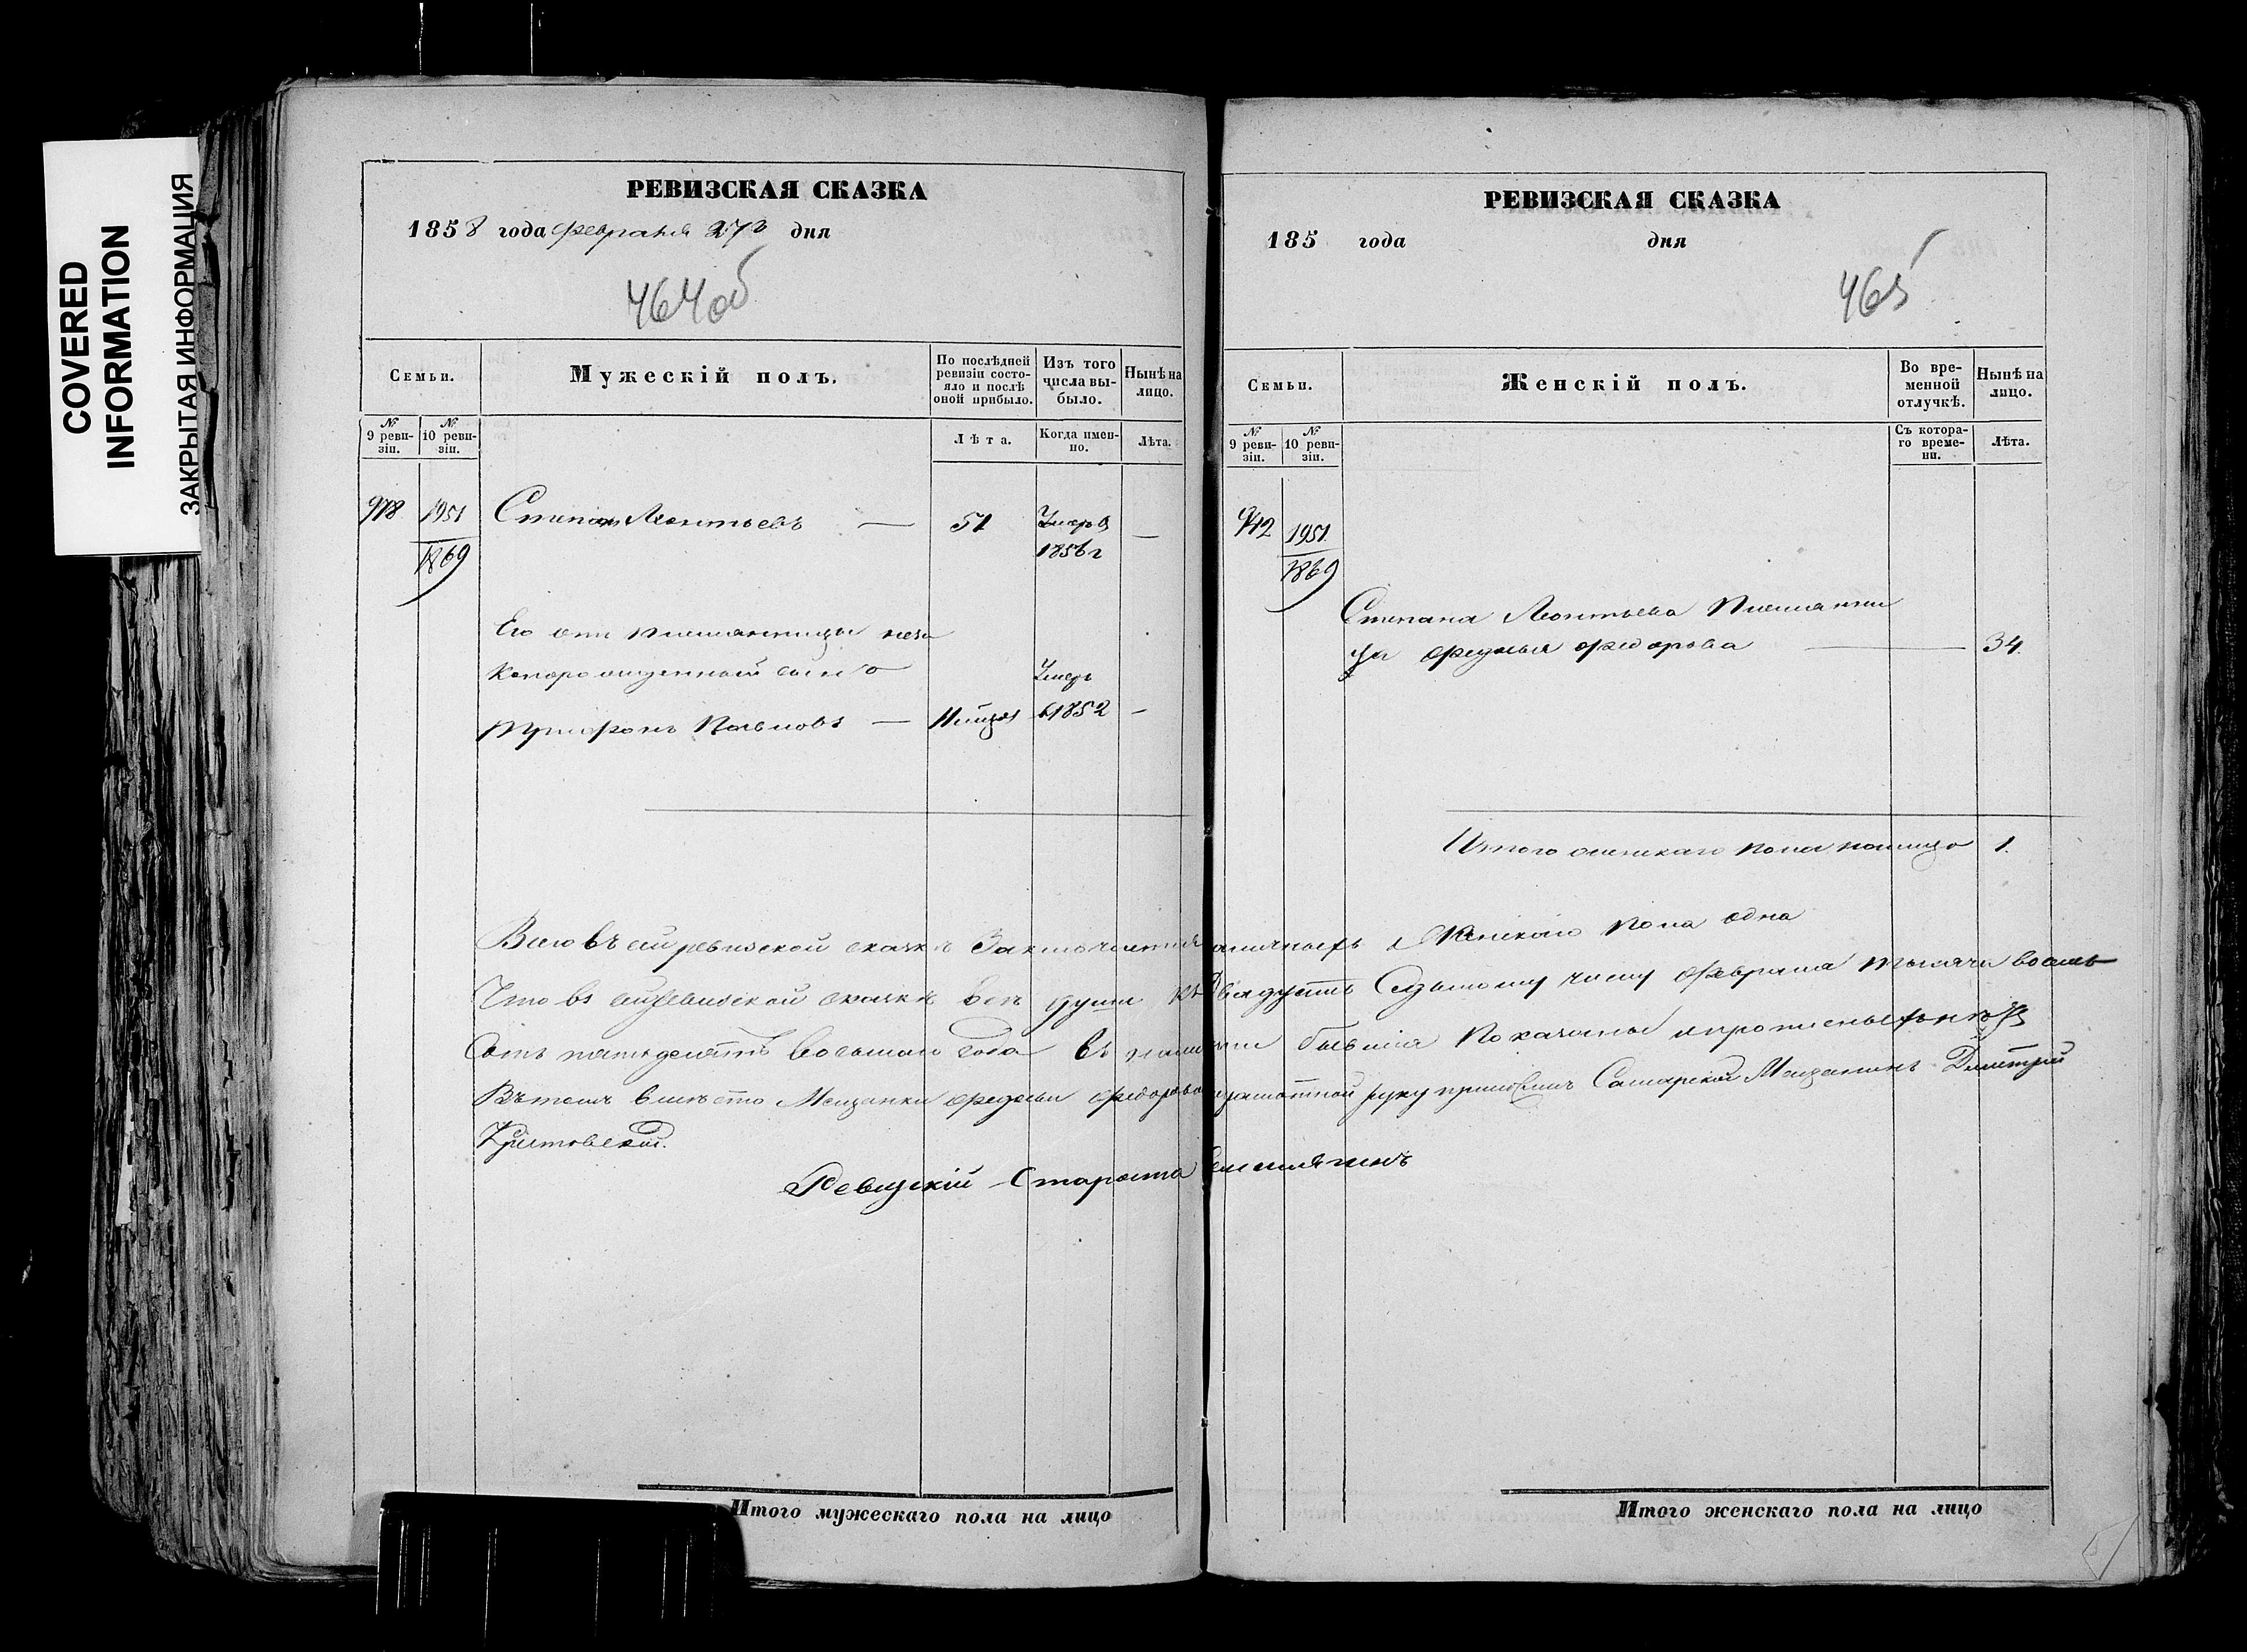 COVERED
INFORMATION
ЗАКРЫТАЯ ИНФОРМАЦИЯ
РЕВИЗСКАЯ СКАЗКА
1858 года февраля 27го дня
464об
Семьи.
Мужескій полъ.
По послѣдней
ревизіи состо-
яло и послѣ
оной прибыло.
Изъ того
числа вы-
было.
Нынѣ на
лицо.
№
9 реви-
зіи.
№
10 реви-
зіи.
Лѣта.
Когда имен-
но.
Лѣта.
918 1951 Степанъ Леонтьевъ — 51 Умеръ —
1869 1856 г
Его отъ племянницы неза
коннорожденный сынъ Умеръ
Трифонъ — въ 1852 —
РЕВИЗСКАЯ СКАЗКА
185 года дня
465
Семьи.
Женскій полъ.
Во вре-
менной
отлучкѣ.
Нынѣ на
лицо.
№
9 реви-
зіи.
№
10 реви-
зіи.
Съ котора-
го време-
ни.
Лѣта.
942 1951
1869
Степана Леонтьева племянни
ца Федосья Федорова — 34.
Итого женскаго пола налицо 1.
Всего въ сей ревизской сказкѣ заключается наличныхъ женскаго пола одна
Что въ сей ревизской сказкѣ всѣ души къ двадцать седьмому числу февраля тысяча восемь
сотъ пятьдесятъ восьмаго года въ наличіи бывшія показаны и прописныхъ нѣтъ
Въ томъ вмѣсто Мещанки Федосьи Федоровой неграмотной руку приложилъ Самарскій Мещанинъ Дмитрій
Ревизскій Староста
Итого мужескаго пола на лицо
Итого женскаго пола на лицо